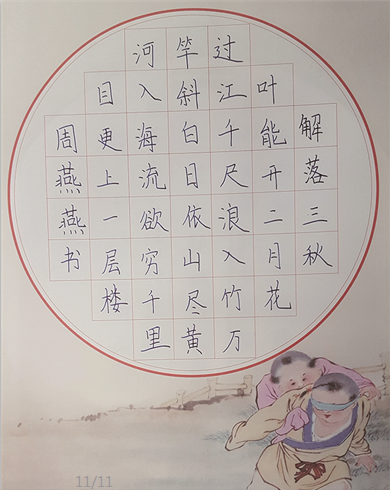 解落三秋
叶能开二月花
过江千尺浪入竹万
竿斜白日依山尽黄
河入海流欲穷千里
目更上一层楼
周燕燕书
11/11